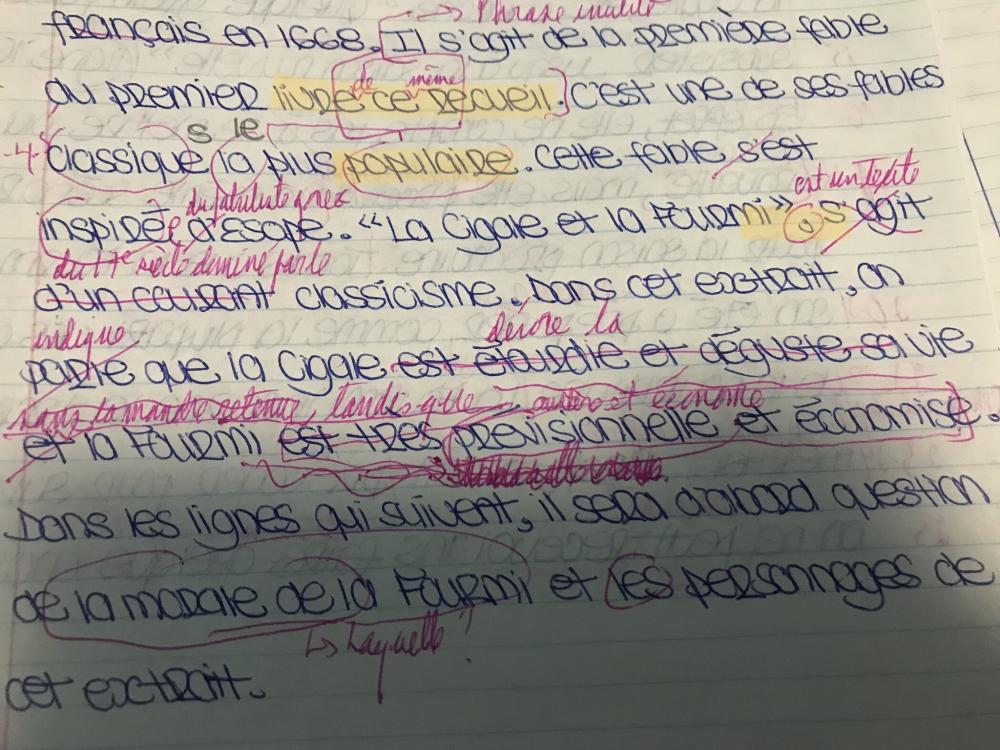 → Phrase inutile
français en 1668. Il s'agit de la première fable
de même
du premier livre ce recueil. C'est une de ses fables
s le
-4- classique la plus populaire. Cette fable s'est
du fabuliste grec
est un texte
inspirée d'Esope. “La Cigale et la Fourmi”, s'agit
du 17e siècle
d'un courant classicisme. Dans cet extrait, on
indique
décore la
parle que la Cigale est étourdie et déguste sa vie
sans la moindre retenue, tandis que austère et économe
et la Fourmi est très prévisionnelle et économise.
Dans les lignes qui suivent, il sera d'abord question
de la morale de la Fourmi et les personnages de
↳ Laquelle?
cet extrait.